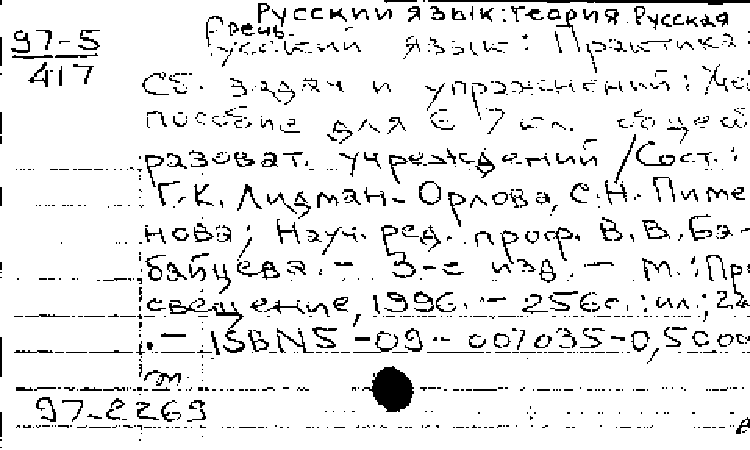 Русский язык: Теория. Русская
97-5
речь.
Русский язык: Практика:
417
Сб. задач и упражнений: Уче
пособие для 6 7 кл. общеоб
разоват. учреждений / Сост.:
Г.К. Лидман-Орлова, С.Н. Пиме
нова; Науч. ред. проф. В.В. Ба-
байцева. - 3-е изд. - М.: Про
свещение, 1996. - 256 с.: ил.; 22
. - ISBN 5-09-007035-0, 5000
97-2269